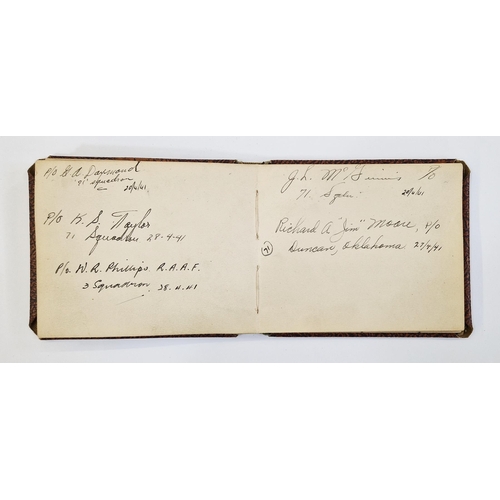 P/O G A Daymond
"71" Squadron 28/4/41
P/O K. S. Taylor
71 Squadron 28-4-41
P/o. W. R. Phillips. R.A.A.F.
3 Squadron 28.4.41
J. L. Mc P/O
71. Sqdn: 28/4/41
Richard A "Jim" Moore, P/O
71 Duncan, Oklahoma 27/4/41